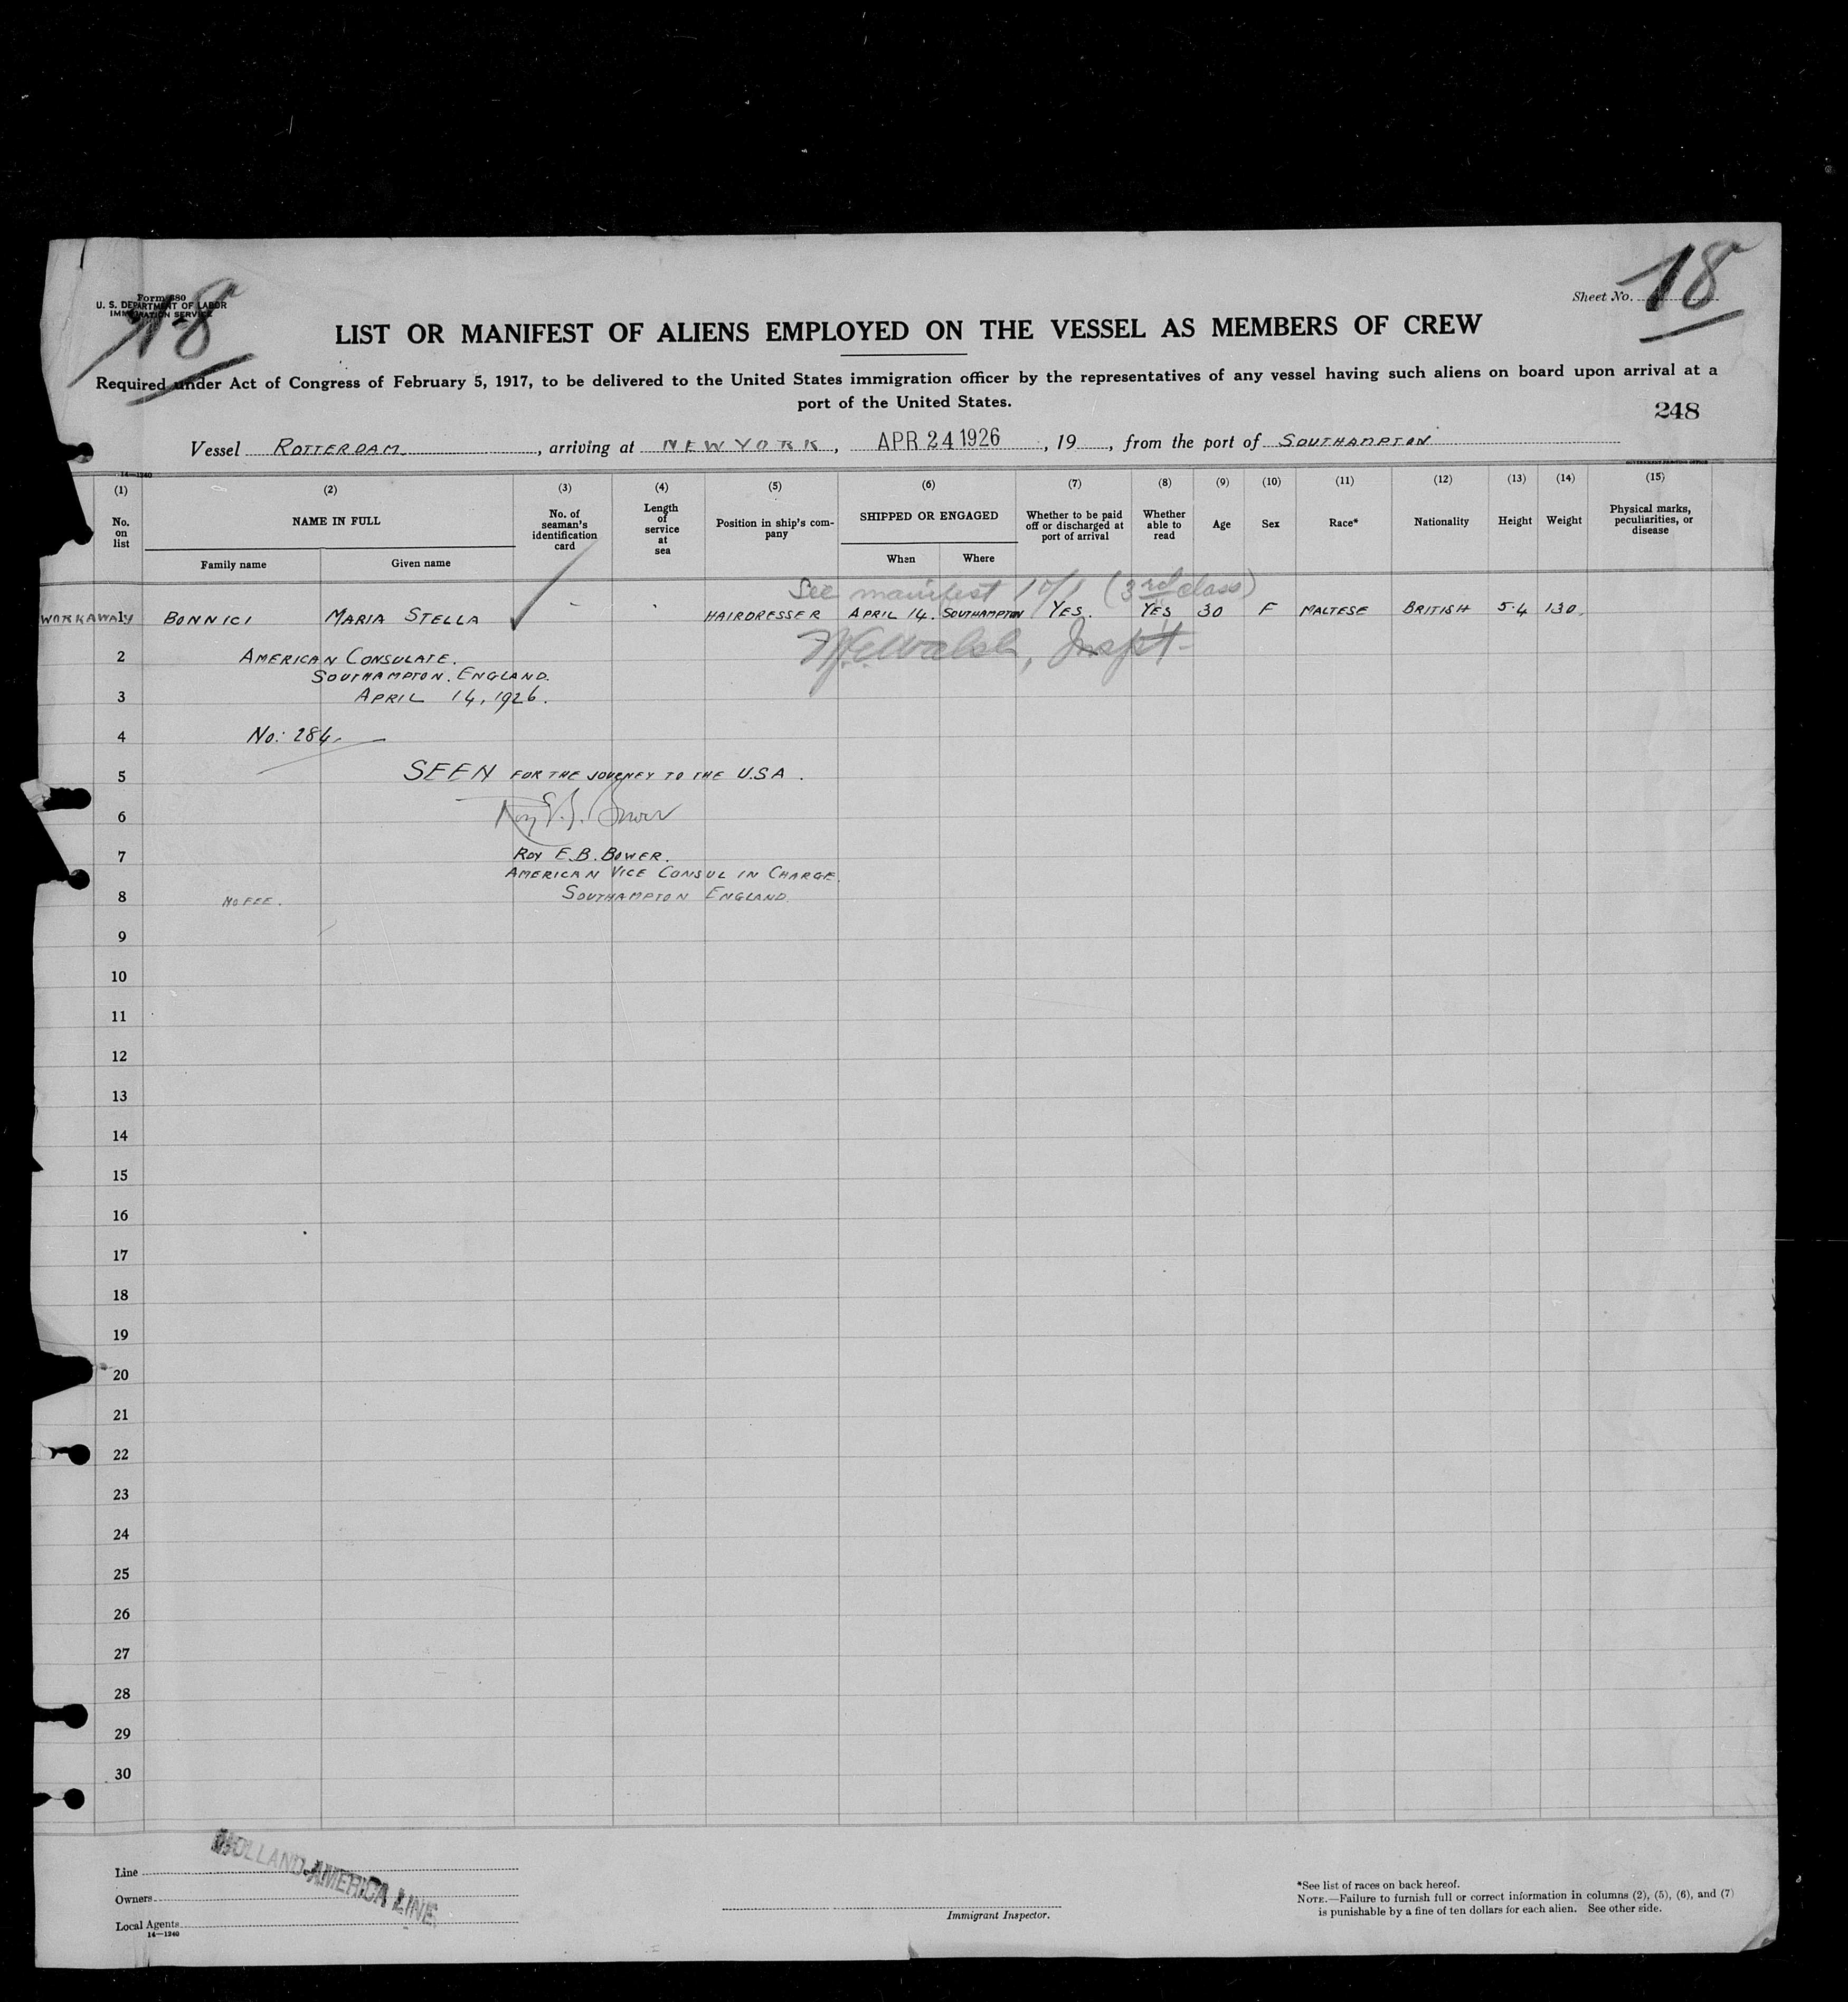 Form 680
U. S. DEPARTMENT OF LABOR
IMMIGRATION SERVICE
18
Sheet No. 18
LIST OR MANIFEST OF ALIENS EMPLOYED ON THE VESSEL AS MEMBERS OF CREW
Required under Act of Congress of February 5, 1917, to be delivered to the United States immigration officer by the representatives of any vessel having such aliens on board upon arrival at a
port of the United States.
248
Vessel ROTTERDAM, arriving at NEW YORK, APR 24 1926, 19, from the port of SOUTHAMPTON
14—1240
(1) (2) (3) (4) (5) (6) (7) (8) (9) (10) (11) (12) (13) (14) (15)
No. on list
NAME IN FULL
Family name
Given name
No. of seaman's identification card
Length of service at sea
Position in ship's company
SHIPPED OR ENGAGED
When
Where
Whether to be paid off or discharged at port of arrival
Whether able to read
Age
Sex
Race*
Nationality
Height
Weight
Physical marks, peculiarities, or disease
See manifest 10/1 (3rd class)
WORKAWAY 1 BONNICI MARIA STELLA - - HAIRDRESSER APRIL 14. SOUTHAMPTON YES. YES 30 F MALTESE BRITISH 5.4 130.
Walsh, Insp't
2 AMERICAN CONSULATE.
SOUTHAMPTON. ENGLAND.
3 APRIL 14, 1926.
4 No: 284
5 SEEN FOR THE JOURNEY TO THE U.S.A.
6 Roy E. B. Bower
7 ROY E.B. BOWER.
AMERICAN VICE CONSUL IN CHARGE.
8 NO FEE. SOUTHAMPTON ENGLAND.
9
10
11
12
13
14
15
16
17
18
19
20
21
22
23
24
25
26
27
28
29
30
HOLLAND-AMERICA LINE
Line
Owners
Local Agents
14—1240
Immigrant Inspector.
*See list of races on back hereof.
NOTE.—Failure to furnish full or correct information in columns (2), (5), (6), and (7)
is punishable by a fine of ten dollars for each alien. See other side.